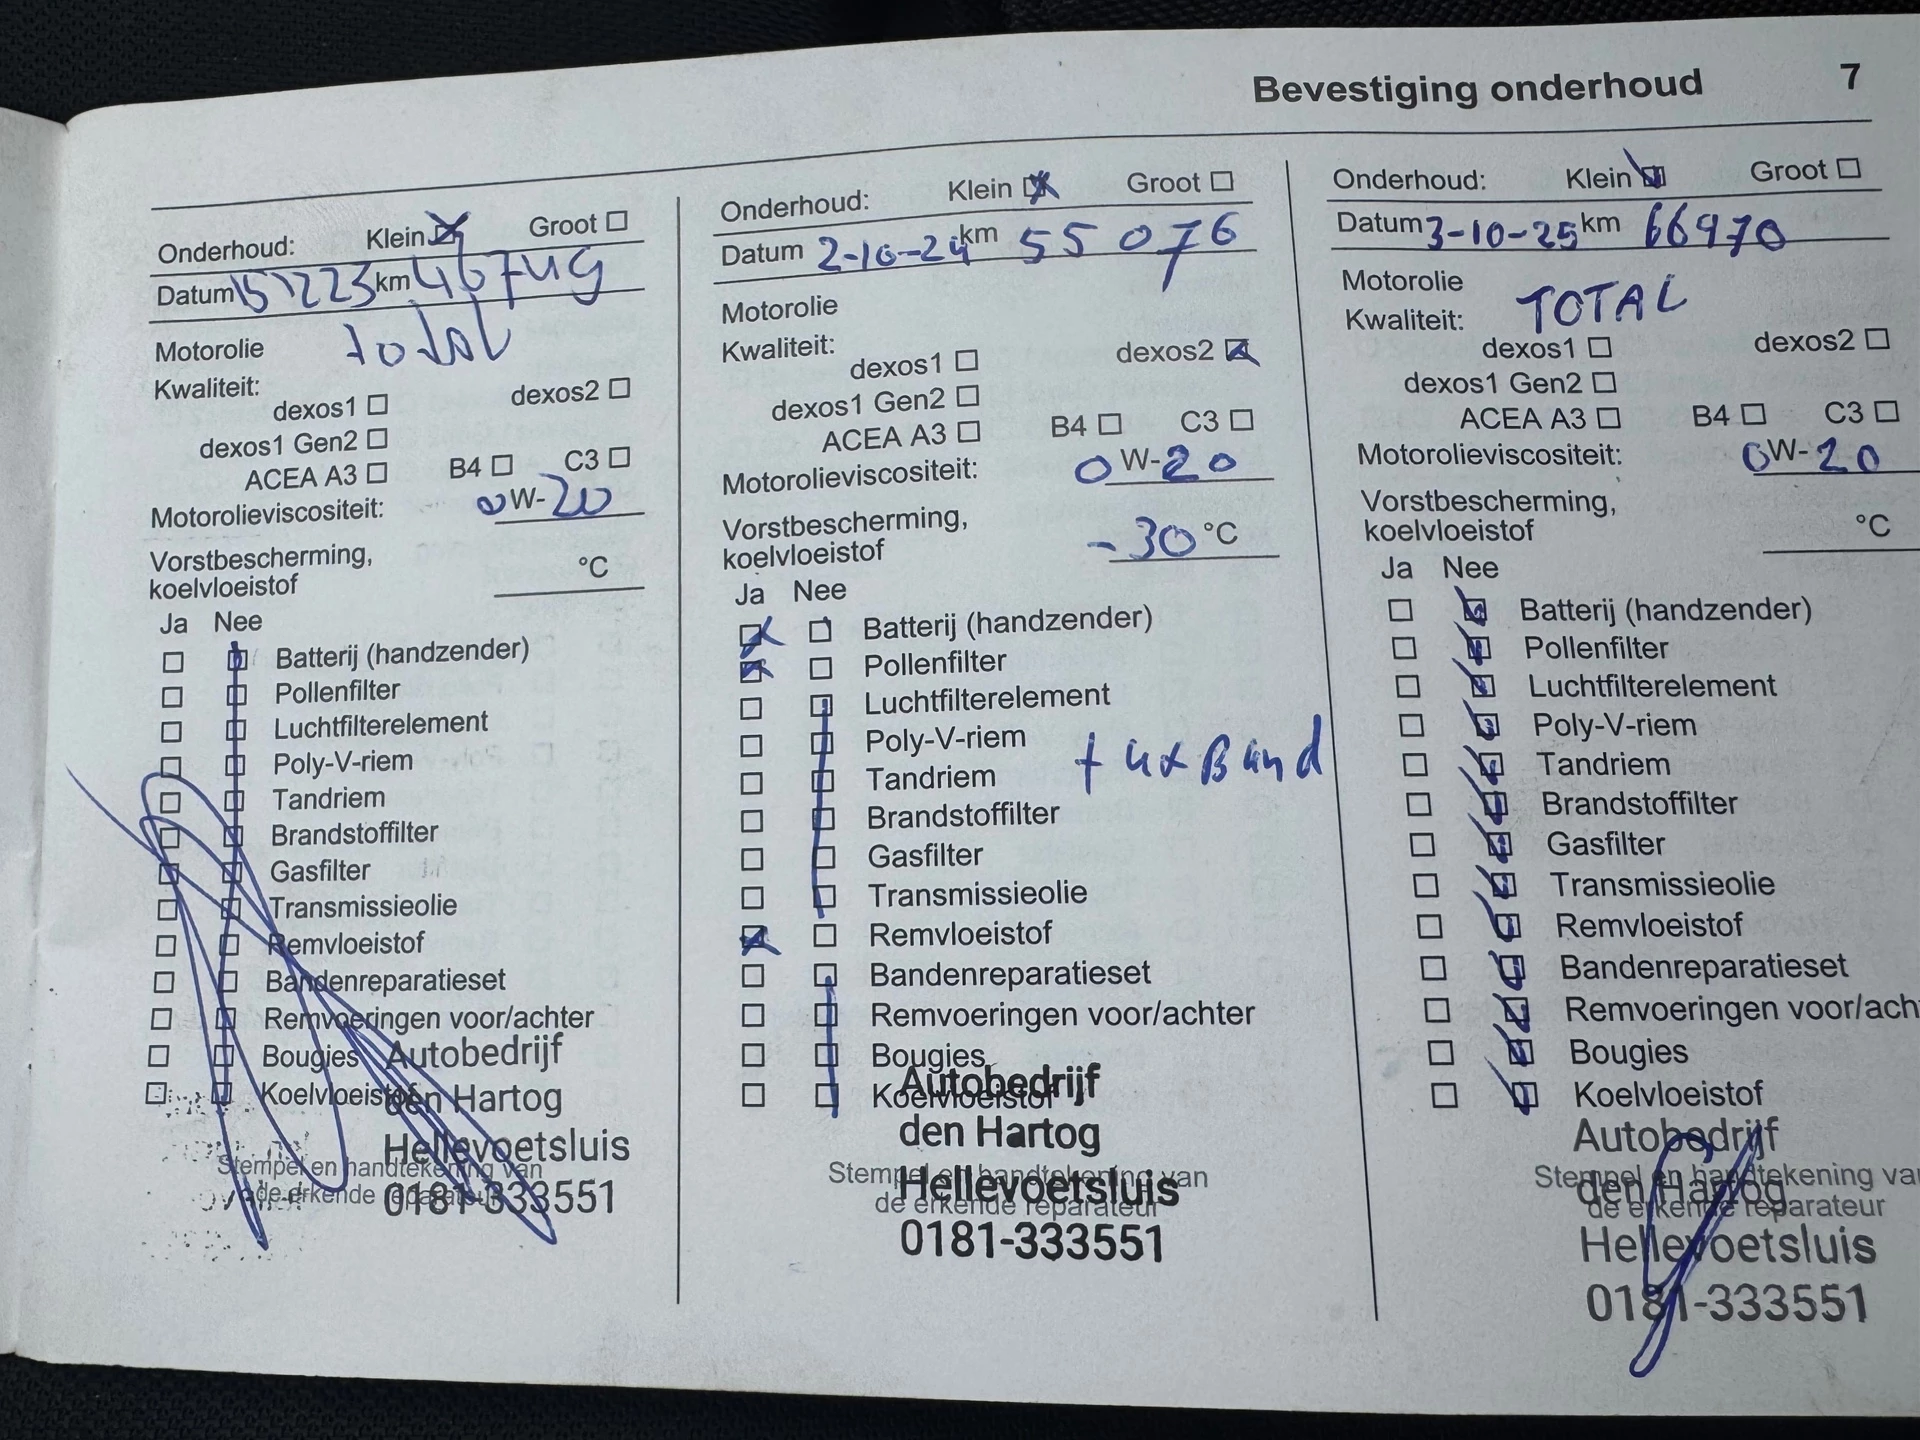 Bevestiging onderhoud 7
Onderhoud: Klein Groot
Datum km
Motorolie total
Kwaliteit:
dexos1 dexos2
dexos1 Gen2
ACEA A3 B4 C3
Motorolieviscositeit: 0W-20
Vorstbescherming,
koelvloeistof °C
Ja Nee
Batterij (handzender)
Pollenfilter
Luchtfilterelement
Poly-V-riem
Tandriem
Brandstoffilter
Gasfilter
Transmissieolie
Remvloeistof
Bandenreparatieset
Remvoeringen voor/achter
Bougies
Koelvloeistof
Autobedrijf
den Hartog
Hellevoetsluis
0181-333551
Stempel en handtekening van
de erkende reparateur
Onderhoud: Klein Groot
Datum 2-10-24 km 55076
Motorolie
Kwaliteit:
dexos1 dexos2
dexos1 Gen2
ACEA A3 B4 C3
Motorolieviscositeit: 0W-20
Vorstbescherming,
koelvloeistof -30 °C
Ja Nee
Batterij (handzender)
Pollenfilter
Luchtfilterelement
Poly-V-riem
Tandriem
+ 4x Band
Brandstoffilter
Gasfilter
Transmissieolie
Remvloeistof
Bandenreparatieset
Remvoeringen voor/achter
Bougies
Koelvloeistof
Autobedrijf
den Hartog
Hellevoetsluis
0181-333551
Stempel en handtekening van
de erkende reparateur
Onderhoud: Klein Groot
Datum 3-10-25 km 66970
Motorolie
Kwaliteit: TOTAL
dexos1 dexos2
dexos1 Gen2
ACEA A3 B4 C3
Motorolieviscositeit: 0W-20
Vorstbescherming,
koelvloeistof °C
Ja Nee
Batterij (handzender)
Pollenfilter
Luchtfilterelement
Poly-V-riem
Tandriem
Brandstoffilter
Gasfilter
Transmissieolie
Remvloeistof
Bandenreparatieset
Remvoeringen voor/ach
Bougies
Koelvloeistof
Autobedrijf
den Hartog
Hellevoetsluis
0181-333551
Stempel en handtekening va
de erkende reparateur